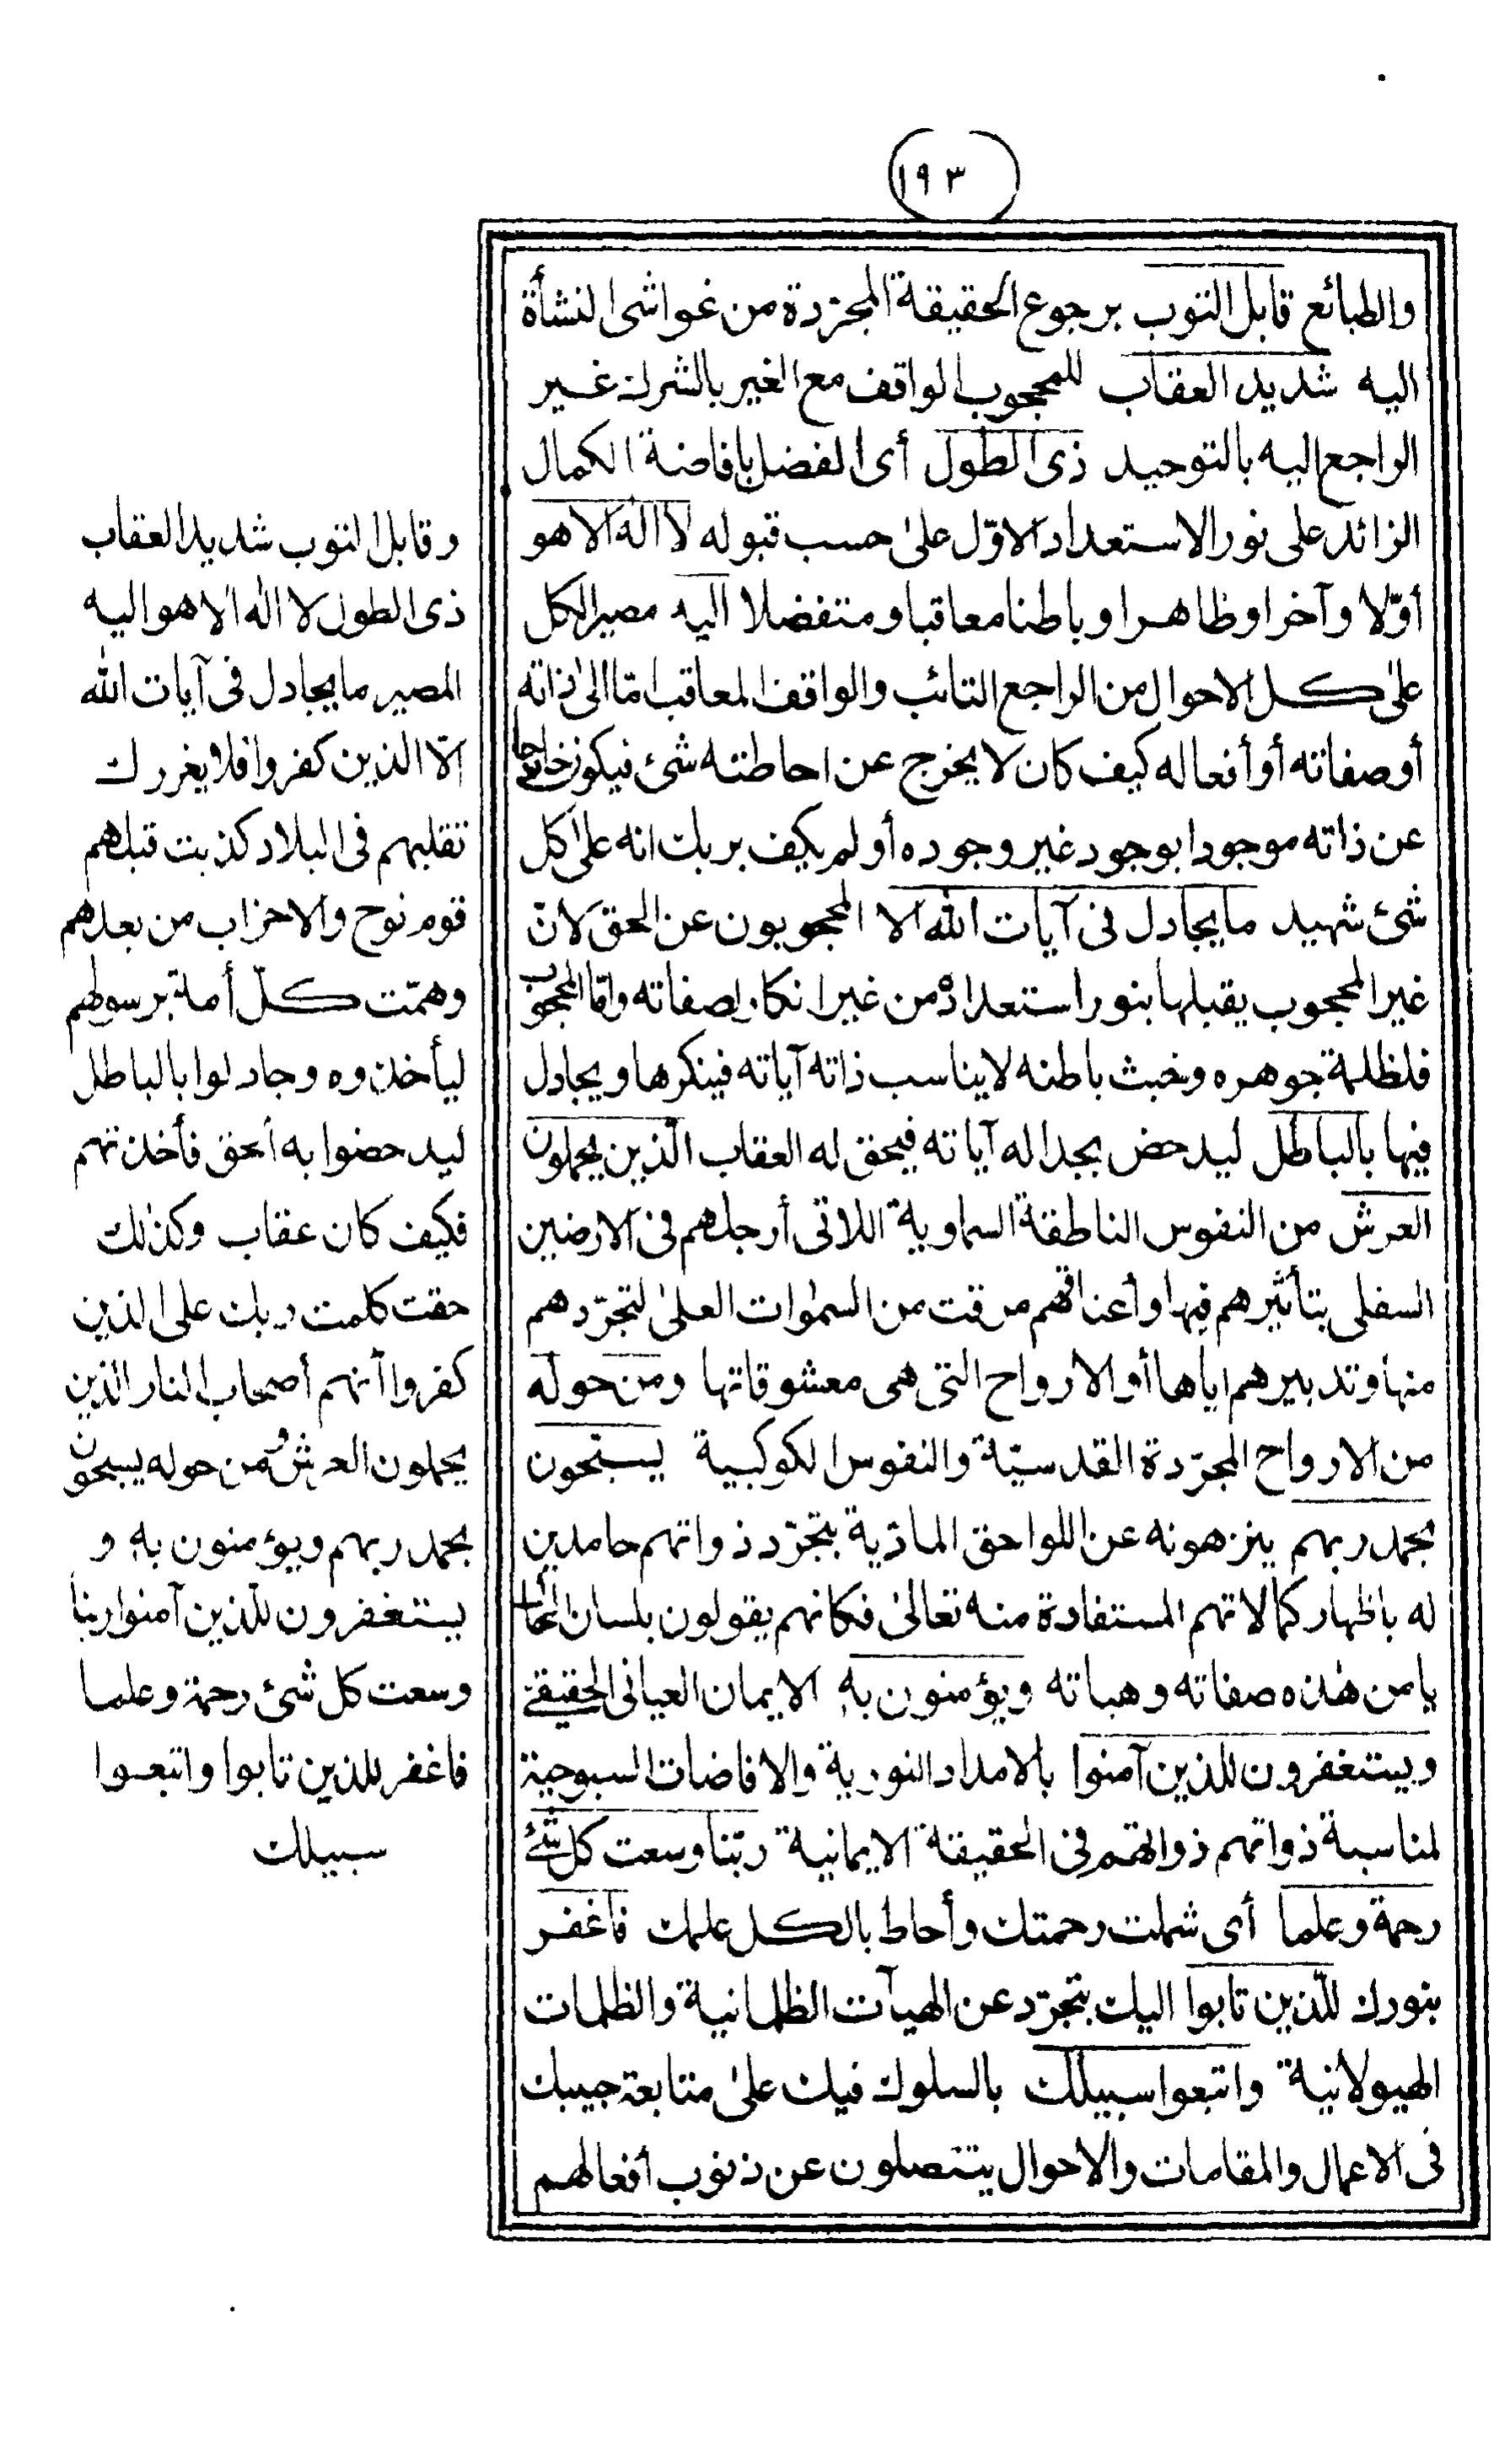 (١٩٣)
والطبائع قابل التوب برجوع الحقيقة المجرّدة من غواشى النشأة
اليه شديد العقاب للمحجوب الواقف مع الغير بالشرك غير
الراجع اليه بالتوحيد ذى الطول أى الفضل بافاضة الكمال
الزائد على نور الاستعداد الاوّل على حسب قبوله لا اله الا هو
أوّلا وآخرا وظاهرا وباطنا معاقبا ومتفضلا اليه مصير الكل
على كل الاحوال من الراجع التائب والواقف المعاقب امّا الى ذاته
أو صفاته أو أفعاله كيف كان لا يخرج عن احاطته شئ فيكون خارجا
عن ذاته موجودا بوجود غير وجوده أولم يكف بربك انه على كل
شئ شهيد ما يجادل فى آيات الله الا المحجوبون عن الحق لانّ
غير المحجوب يقبلها بنور استعداده من غير انكار لصفاته وامّا المحجوب
فلظلمة جوهره وخبث باطنه لا يناسب ذاته آياته فينكرها ويجادل
فيها بالباطل ليدحض بجداله آياته فيحق له العقاب الّذين يحملون
العرش من النفوس الناطقة السماوية اللاتى أرجلهم فى الارضين
السفلى بتأثيرهم فيها وأعناقهم مرقت من السموات العلى لتجرّدهم
منها وتدبيرهم اياها أو الارواح التى هى معشوقاتها ومن حوله
من الارواح المجرّدة القدسيّة والنفوس الكوكبية يسبّحون
بحمد ربهم ينزهونه عن اللواحق المادّية بتجرّد ذواتهم حامدين
له باظهار كمالاتهم المستفادة منه تعالى فكانهم يقولون بلسان الحال
يا من هذه صفاته وهباته ويؤمنون به الايمان العيانى الحقيقى
ويستغفرون للذين آمنوا بالامداد النورية والافاضات السبوحية
لمناسبة ذواتهم ذواتهم فى الحقيقة الايمانية ربّنا وسعت كل شئ
رحمة وعلما أى شملت رحمتك وأحاط بالكل علمك فاغفر
بنورك للّذين تابوا اليك بتجرّد عن الهيآت الظلمانية والظلمات
الهيولانية واتبعوا سبيلك بالسلوك فيك على متابعة حبيبك
فى الاعمال والمقامات والاحوال يتنصلون عن ذنوب أفعالهم
وقابل التوب شديد العقاب
ذى الطول لا اله الا هو اليه
المصير ما يجادل فى آيات الله
الّا الذين كفروا فلا يغررك
تقلبهم فى البلاد كذبت قبلهم
قوم نوح والاحزاب من بعدهم
وهمّت كلّ أمة برسولهم
ليأخذوه وجادلوا بالباطل
ليدحضوا به الحق فأخذتهم
فكيف كان عقاب وكذلك
حقت كلمت ربك على الذين
كفروا أنهم أصحاب النار الذين
يحملون العرش ومن حوله يسبحون
بحمد ربهم ويؤمنون به و
يستغفرون للّذين آمنوا ربنا
وسعت كل شئ رحمة وعلما
فاغفر للذين تابوا واتبعوا
سبيلك